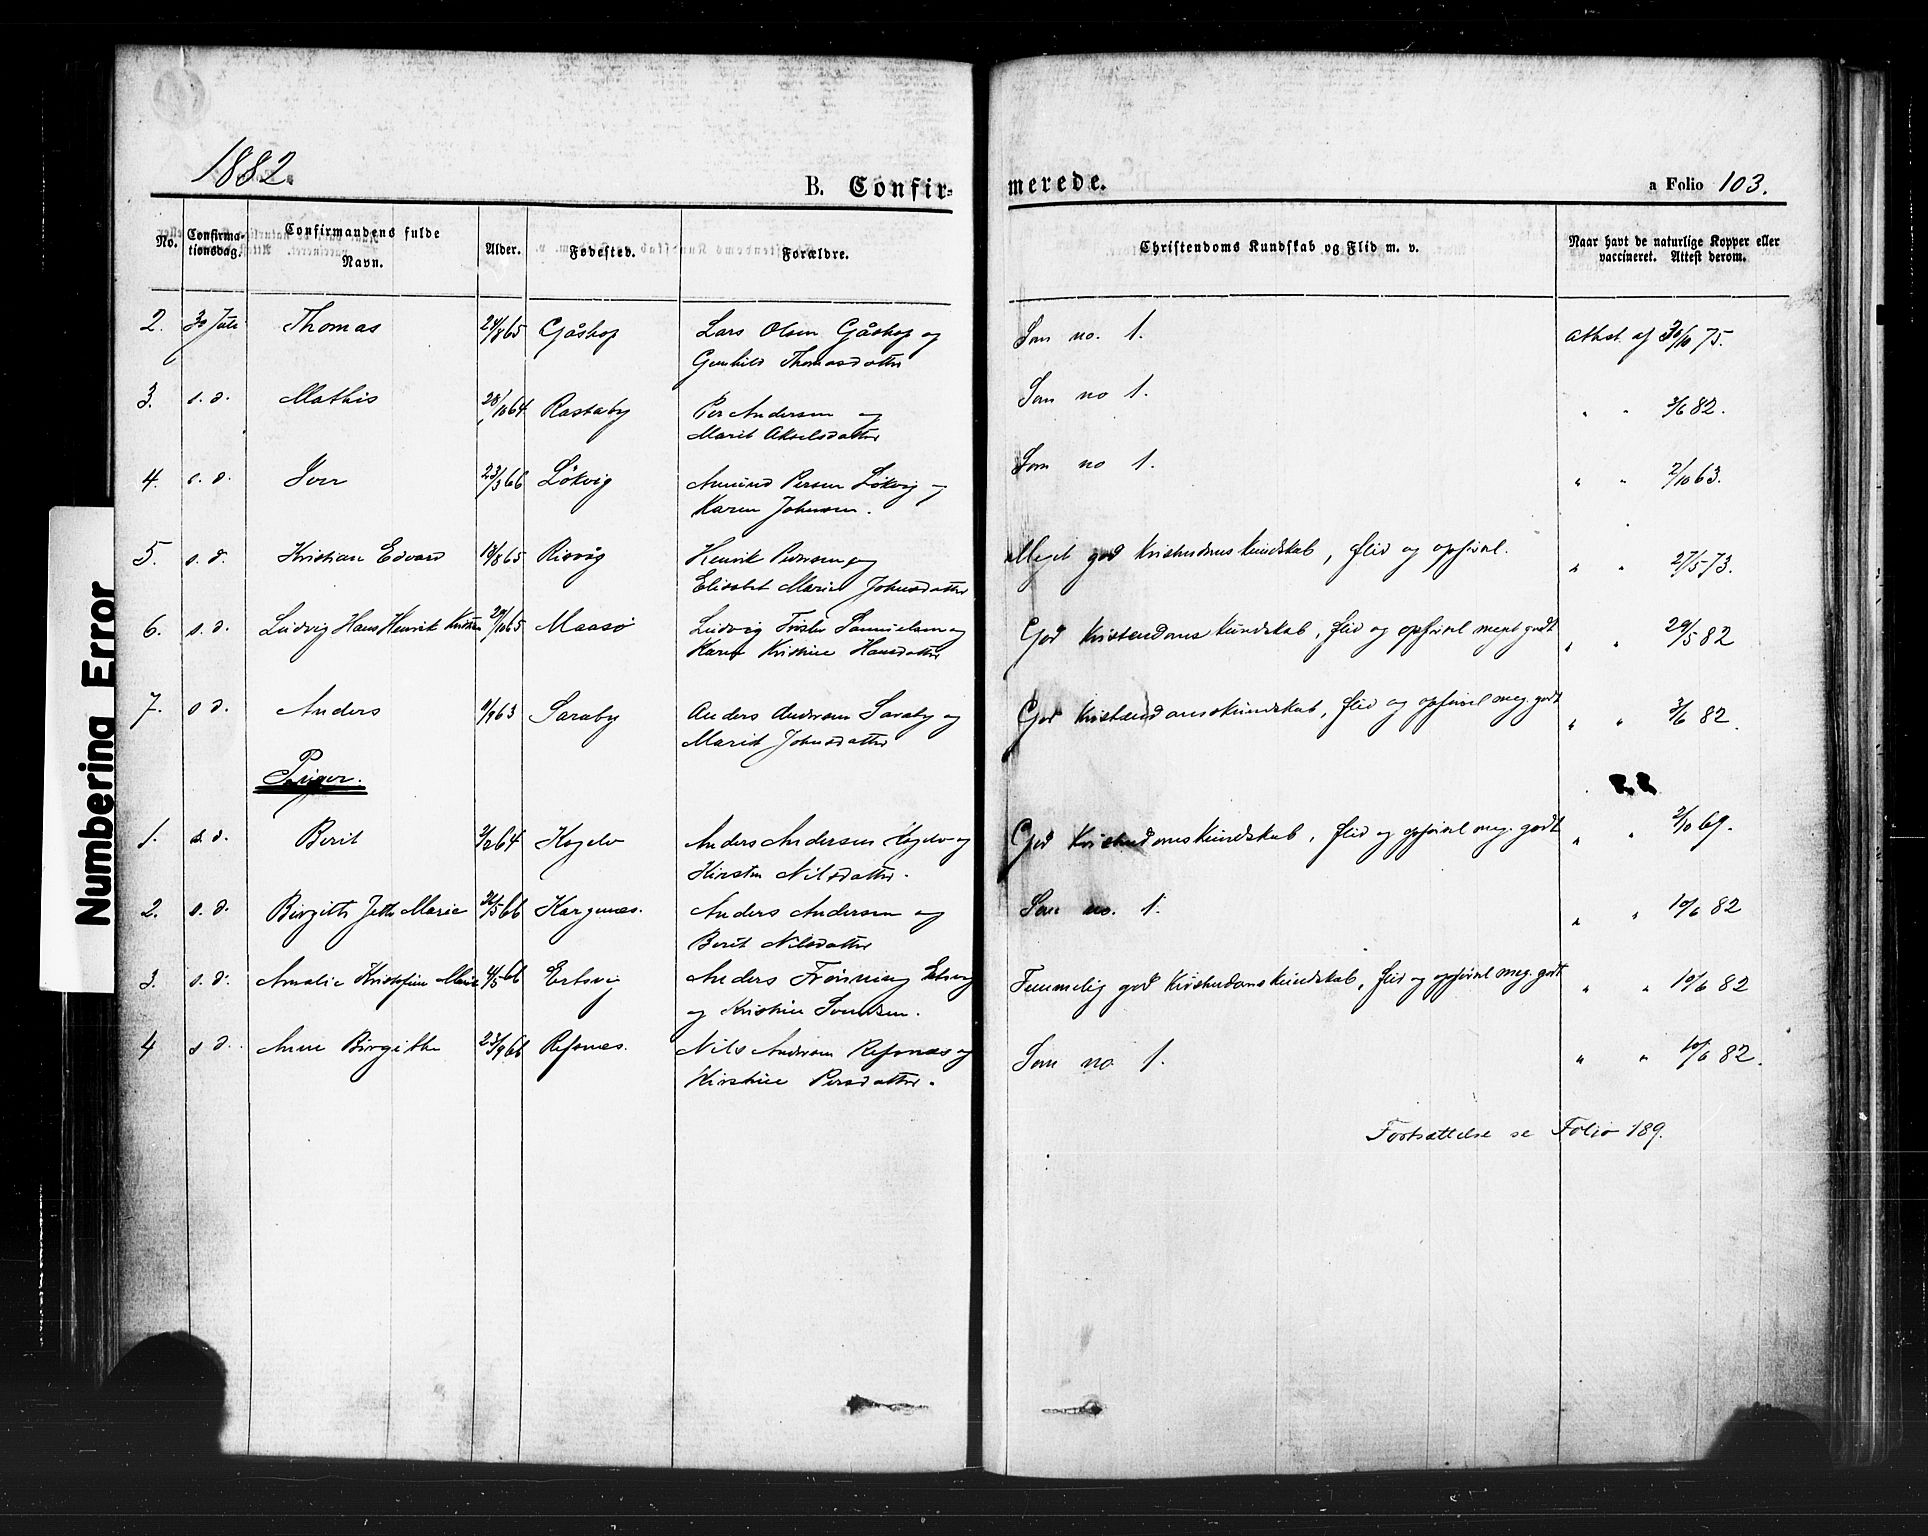 1882.
B. Confir-
merede.
a Folio 103.
No.
Confirma-
tionsdag.
Confirmandens fulde
Navn.
Alder.
Fødested.
Forældre.
Christendoms Kundskab og Flid m. v.
Naar havt de naturlige Kopper eller
vaccineret. Attest derom.
2. 30 Juli Thomas 24/8 65 Gåshop Lars Olsen Gåshop og
Gunhild Thomasdatter
Som no. 1. Attest af 30/10 75.
3. s. d. Mathis 28/10 64 Rastaby Per Andersen og
Marit Akselsdatter
Som no 1. " " 3/6 82.
4. s. d. Iver 23/3 66 Løkvig Amund Persen Løkvig og
Karen Johnsen.
Som no 1. " " 2/10 63.
5. s. d. Kristian Edvard 18/8 65 Risvåg Henrik Pedersen og
Elisabet Marie Johnsdatter
Meget god Kristendomskundskab, flid og opførsel. " " 27/5 73.
6. s. d. Ludvig Hans Henrik 29/10 65 Maasø Ludvig Samuelsen og
Karen Kristine Hansdatter
God Kristendomskundskab, flid og opførsel meget godt " " 29/5 82
7. s d. Anders 63 Saraby Anders Andersen Saraby og
Marit Johnsdatter
God Kristendomskundskab, flid og opførsel meg. godt " " 3/6 82.
Piger.
1. s. d. Berit 64 Anders Andersen og
Kirsten Nilsdatter.
God Kristendomskundskab, flid og opførsel meg. godt " " 2/10 69.
2. s. d. Birgitte Jette Marie 5 66 Kargenæs. Anders Andersen og
Berit Nilsdatter
Som no. 1. " " 10/6 82
3. s. d. Amalie Marie 4/5 66 Anders
og Kristine
Temmelig god Kristendomskundskab, flid og opførsel meg. godt " " 10/6 82
4 s d. Anne Birgitte 23/9 66 Refsnæs. Nils Andersen Refsnæs og
Kirstine Persdatter.
Som no 1. " " 10/6 82.
Fortsættelse se Folio 189.
Numbering Error